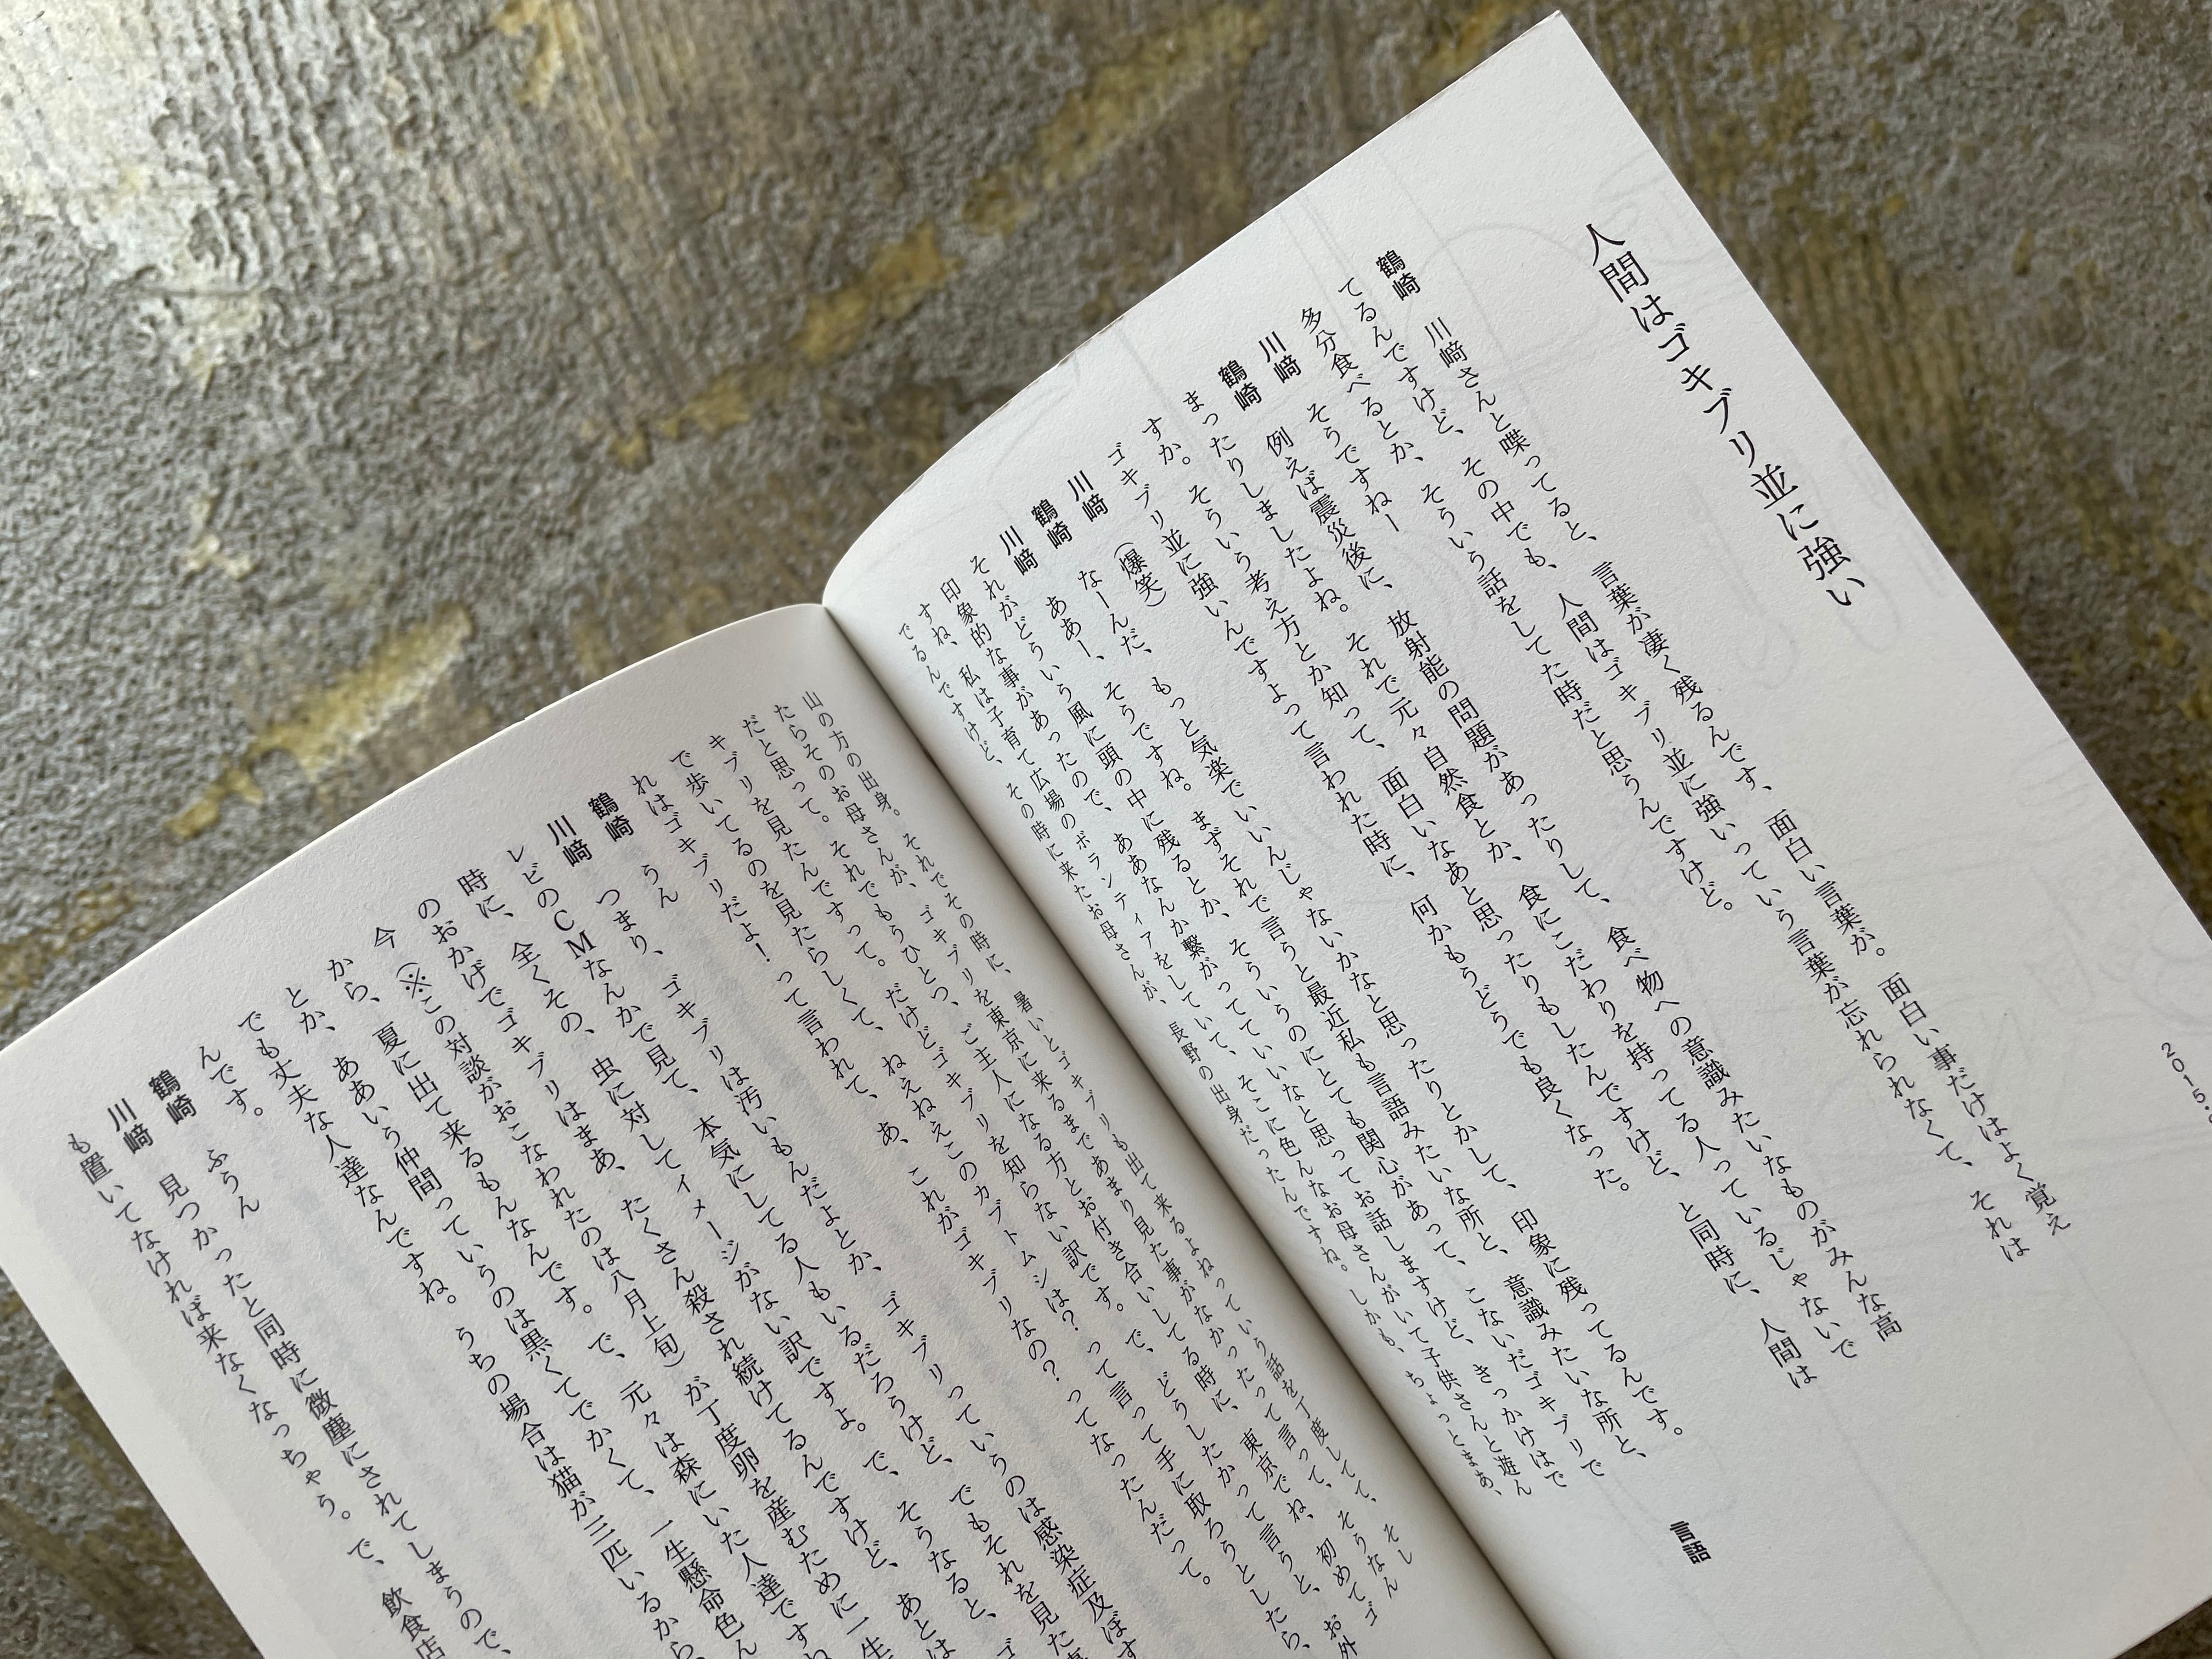 人間はゴキブリ並に強い
2015.
鶴崎　川﨑さんと喋ってると、言葉が凄く残るんです、面白い言葉が。面白い事だけはよく覚え
てるんですけど、その中でも、人間はゴキブリ並に強いっていう言葉が忘れられなくて、それは
多分食べるとか、そういう話をしてた時だと思うんですけど。
川﨑　そうですねー
鶴崎　例えば震災後に、放射能の問題があったりして、食べ物への意識みたいなものがみんな高
まったりしましたよね。それで元々自然食とか、食にこだわりを持ってる人っているじゃないで
すか。そういう考え方とか知って、面白いなあと思ったりもしたんですけど、と同時に、人間は
ゴキブリ並に強いんですよって言われた時に、何かもうどうでも良くなった。
川﨑　（爆笑）
鶴崎　なーんだ、もっと気楽でいいんじゃないかなと思ったりとかして、印象に残ってるんです。
川﨑　ああー、そうですね。まずそれで言うと最近私も言語みたいな所と、意識みたいな所と、
それがどういう風に頭の中に残るとか、そういうのにとても関心があって、こないだゴキブリで
印象的な事があったので、ああなんか繋がってていいなと思ってお話しますけど、きっかけはで
すね、私は子育て広場のボランティアをしていて、そこに色んなお母さんがいて子供さんと遊ん
でるんですけど、その時に来たお母さんが、長野の出身だったんですね。しかも、ちょっとまあ、
言語
山の方の出身。それでその時に、暑いとゴキブリも出て来るよねっていう話を丁度してて、そし
たらそのお母さんが、ゴキブリを東京に来るまであまり見た事がなかったって言って、そうなん
だと思って。それでもうひとつ、ご主人になる方とお付き合いしてる時に、東京でね、初めてゴ
キブリを見たんですって。だけどゴキブリを知らない訳です。で、どうしたかって言うと、お外
で歩いてるのを見たらしくて、ねえねえこのカブトムシは？って言って手に取ろうとしたら、
れはゴキブリだよ！って言われて、あ、これがゴキブリなの？ってなったんだって。
鶴崎　うん
川﨑　つまり、ゴキブリは汚いもんだよとか、ゴキブリっていうのは感染症及ぼす
レビのＣＭなんかで見て、本気にしてる人もいるだろうけど、でもそれを見た
時に、全くその、虫に対してイメージがない訳ですよ。で、そうなると、ゴ
のおかげでゴキブリはまあ、たくさん殺され続けてるんですけど、あとは
今（※この対談がおこなわれたのは八月上旬）が丁度卵を産むために一生
から、夏に出て来るもんなんです。で、元々は森にいた人達ですね
とか、ああいう仲間っていうのは黒くてでかくて、一生懸命色ん
でも丈夫な人達なんですね。うちの場合は猫が三匹いるから、
んです。
鶴崎　ふうん
川﨑　見つかったと同時に微塵にされてしまうので、
も置いてなければ来なくなっちゃう。で、飲食店